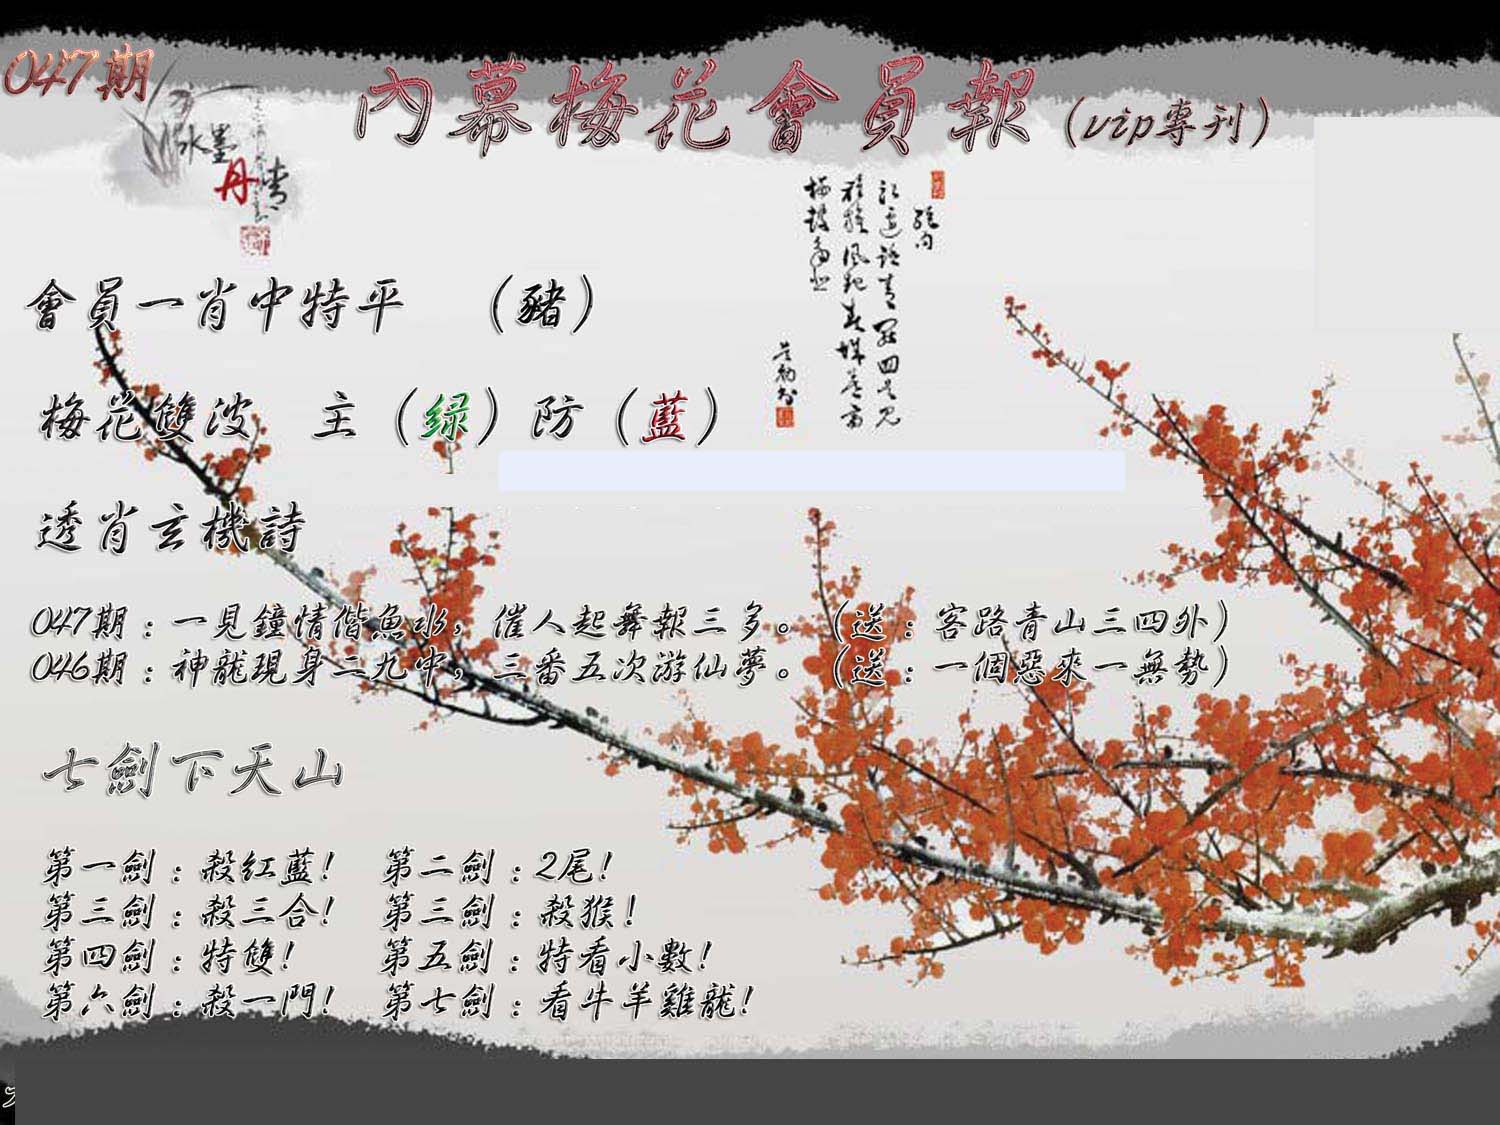 047期
內幕梅花會員報（vip專刊）
水墨
丹青
會員一肖中特平　（豬）
梅花雙波　主（緑）防（藍）
透肖玄機詩
047期：一見鐘情偕魚水，催人起舞報三多。（送：客路青山三四外）
046期：神龍現身二九中，三番五次游仙夢。（送：一個惡來一無勢）
七劍下天山
第一劍：殺红藍！　第二劍：2尾！
第三劍：殺三合！　第三劍：殺猴！
第四劍：特雙！　第五劍：特看小數！
第六劍：殺一門！　第七劍：看牛羊雞龍！